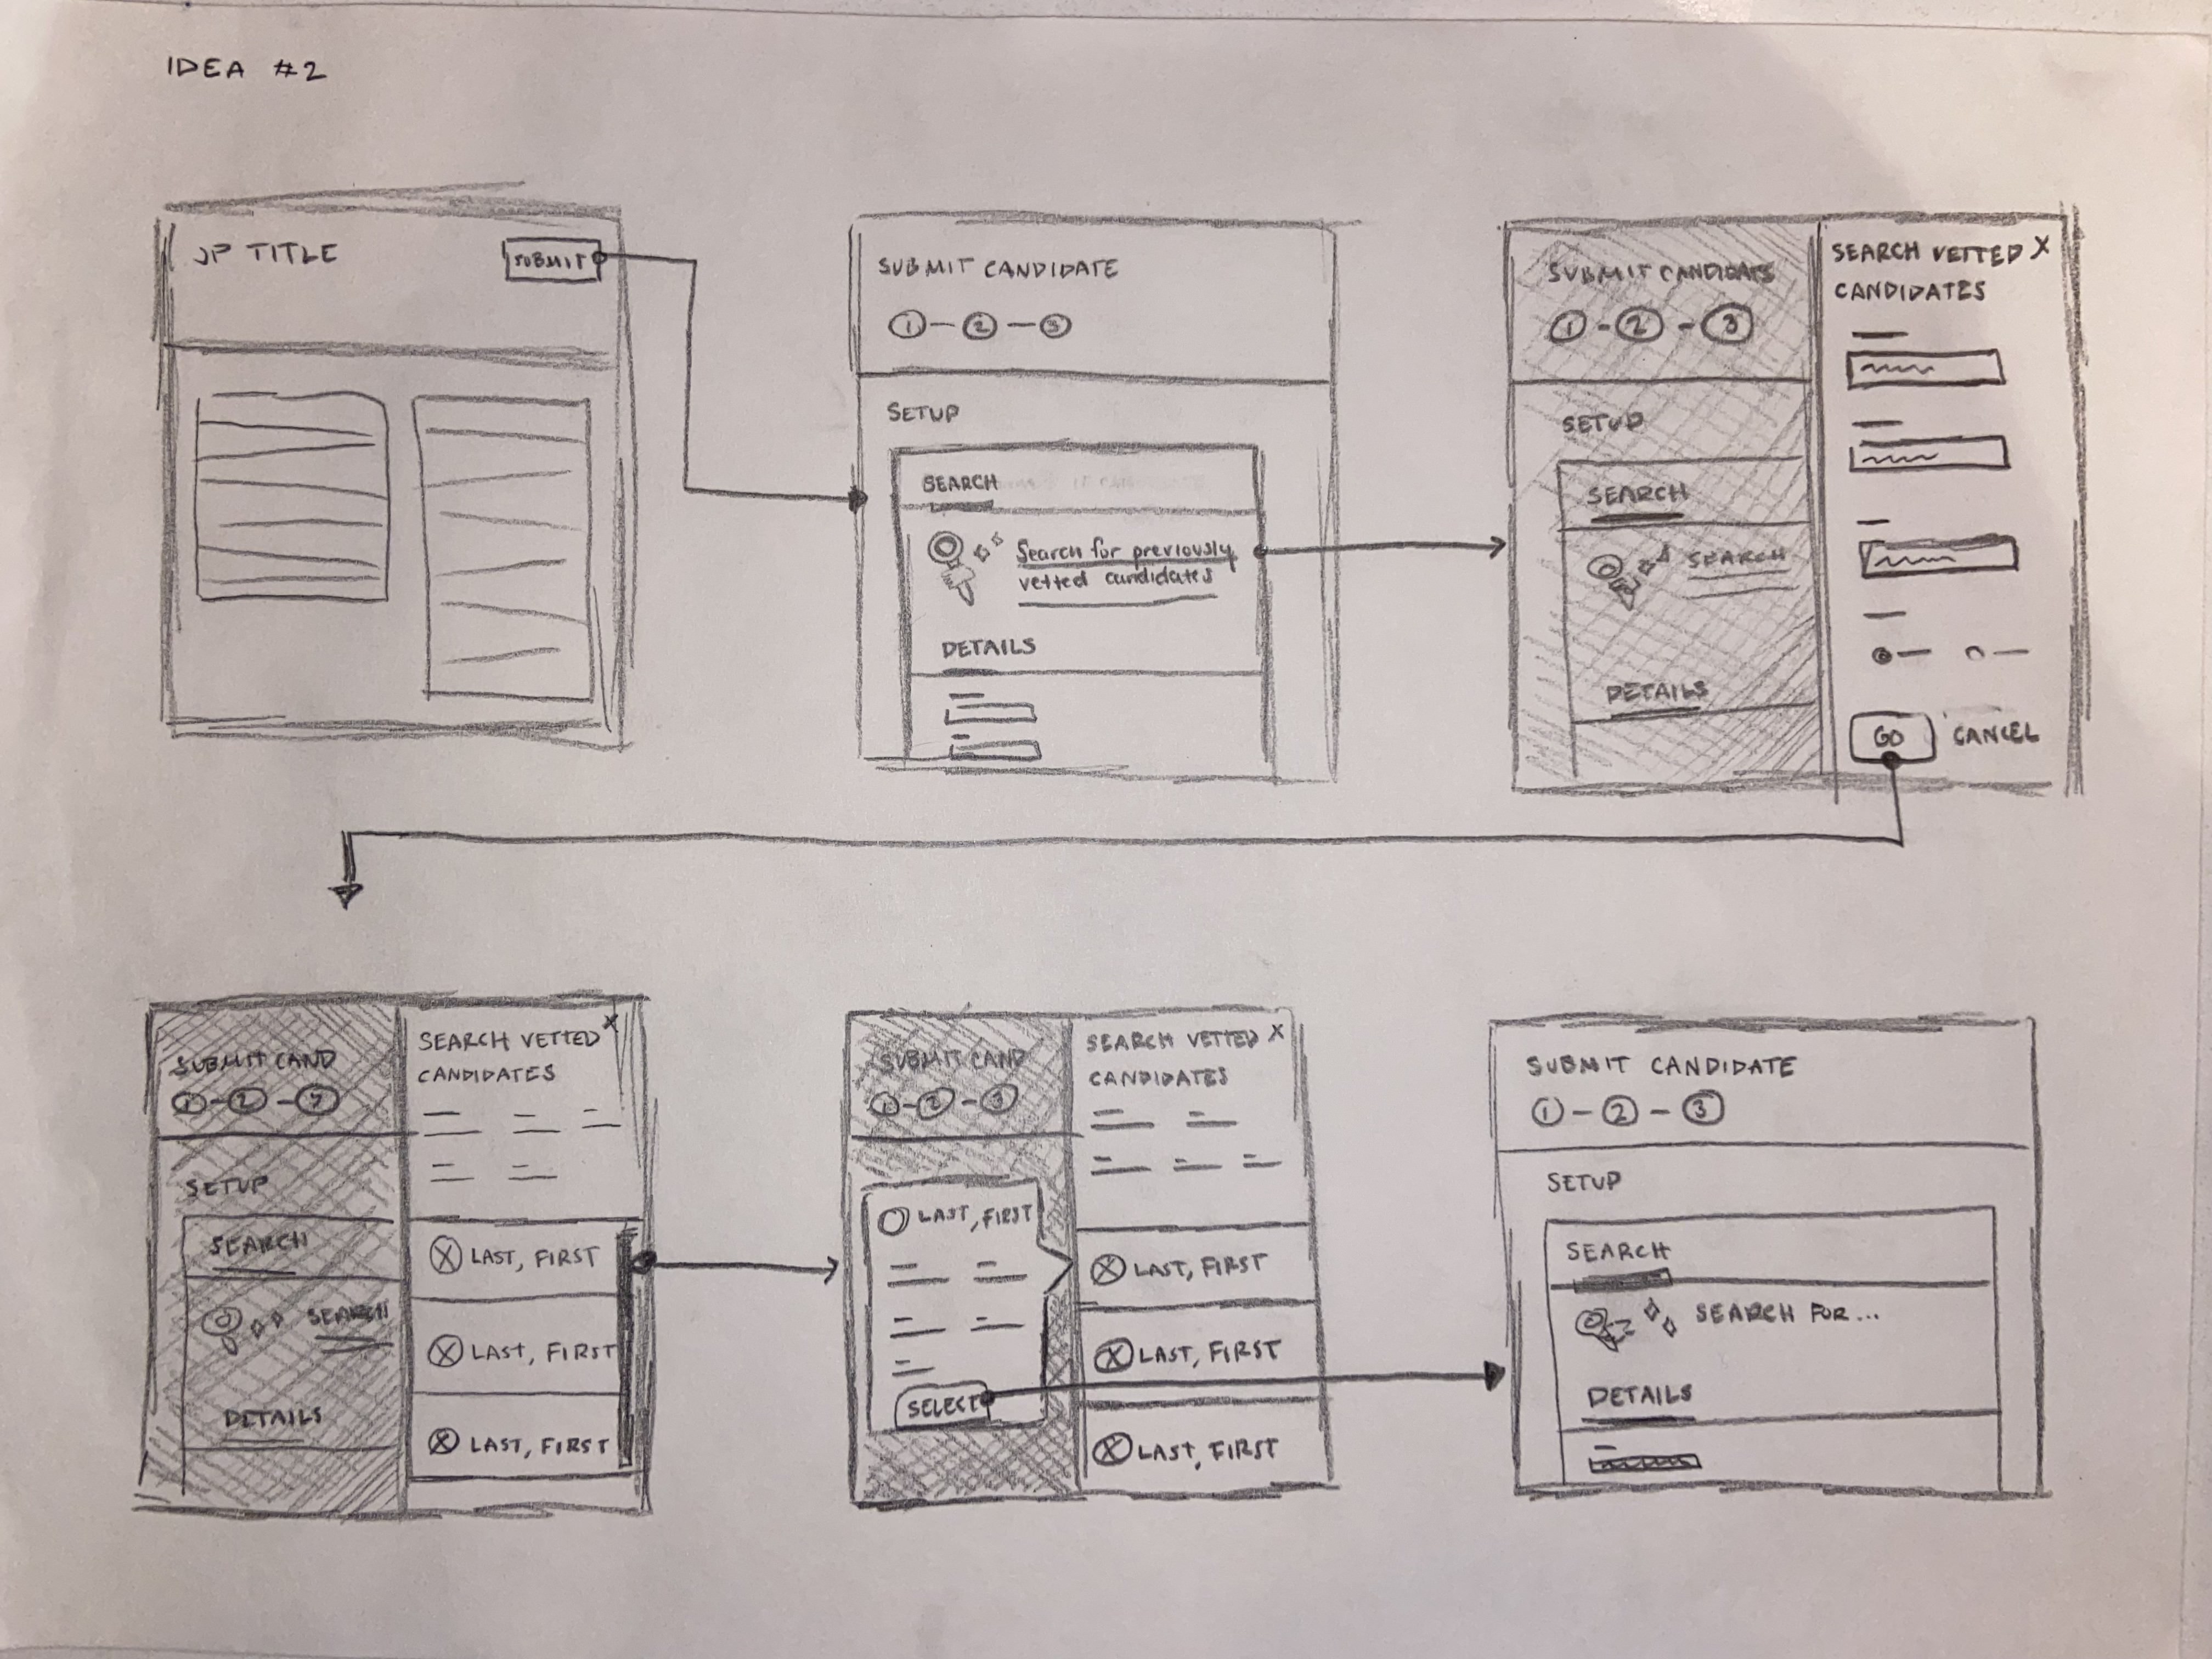 IDEA #2
JP TITLE
SUBMIT
SUBMIT CANDIDATE
1 - 2 - 3
SETUP
SEARCH
Search for previously
vetted candidates
DETAILS
SUBMIT CANDIDATE
1 - 2 - 3
SETUP
SEARCH
SEARCH
DETAILS
SEARCH VETTED X
CANDIDATES
GO CANCEL
SUBMIT CAND
1 - 2 - 3
SETUP
SEARCH
SEARCH
DETAILS
SEARCH VETTED X
CANDIDATES
X LAST, FIRST
X LAST, FIRST
X LAST, FIRST
SUBMIT CAND
1 - 2 - 3
LAST, FIRST
SELECT
SEARCH VETTED X
CANDIDATES
X LAST, FIRST
X LAST, FIRST
X LAST, FIRST
SUBMIT CANDIDATE
1 - 2 - 3
SETUP
SEARCH
SEARCH FOR...
DETAILS